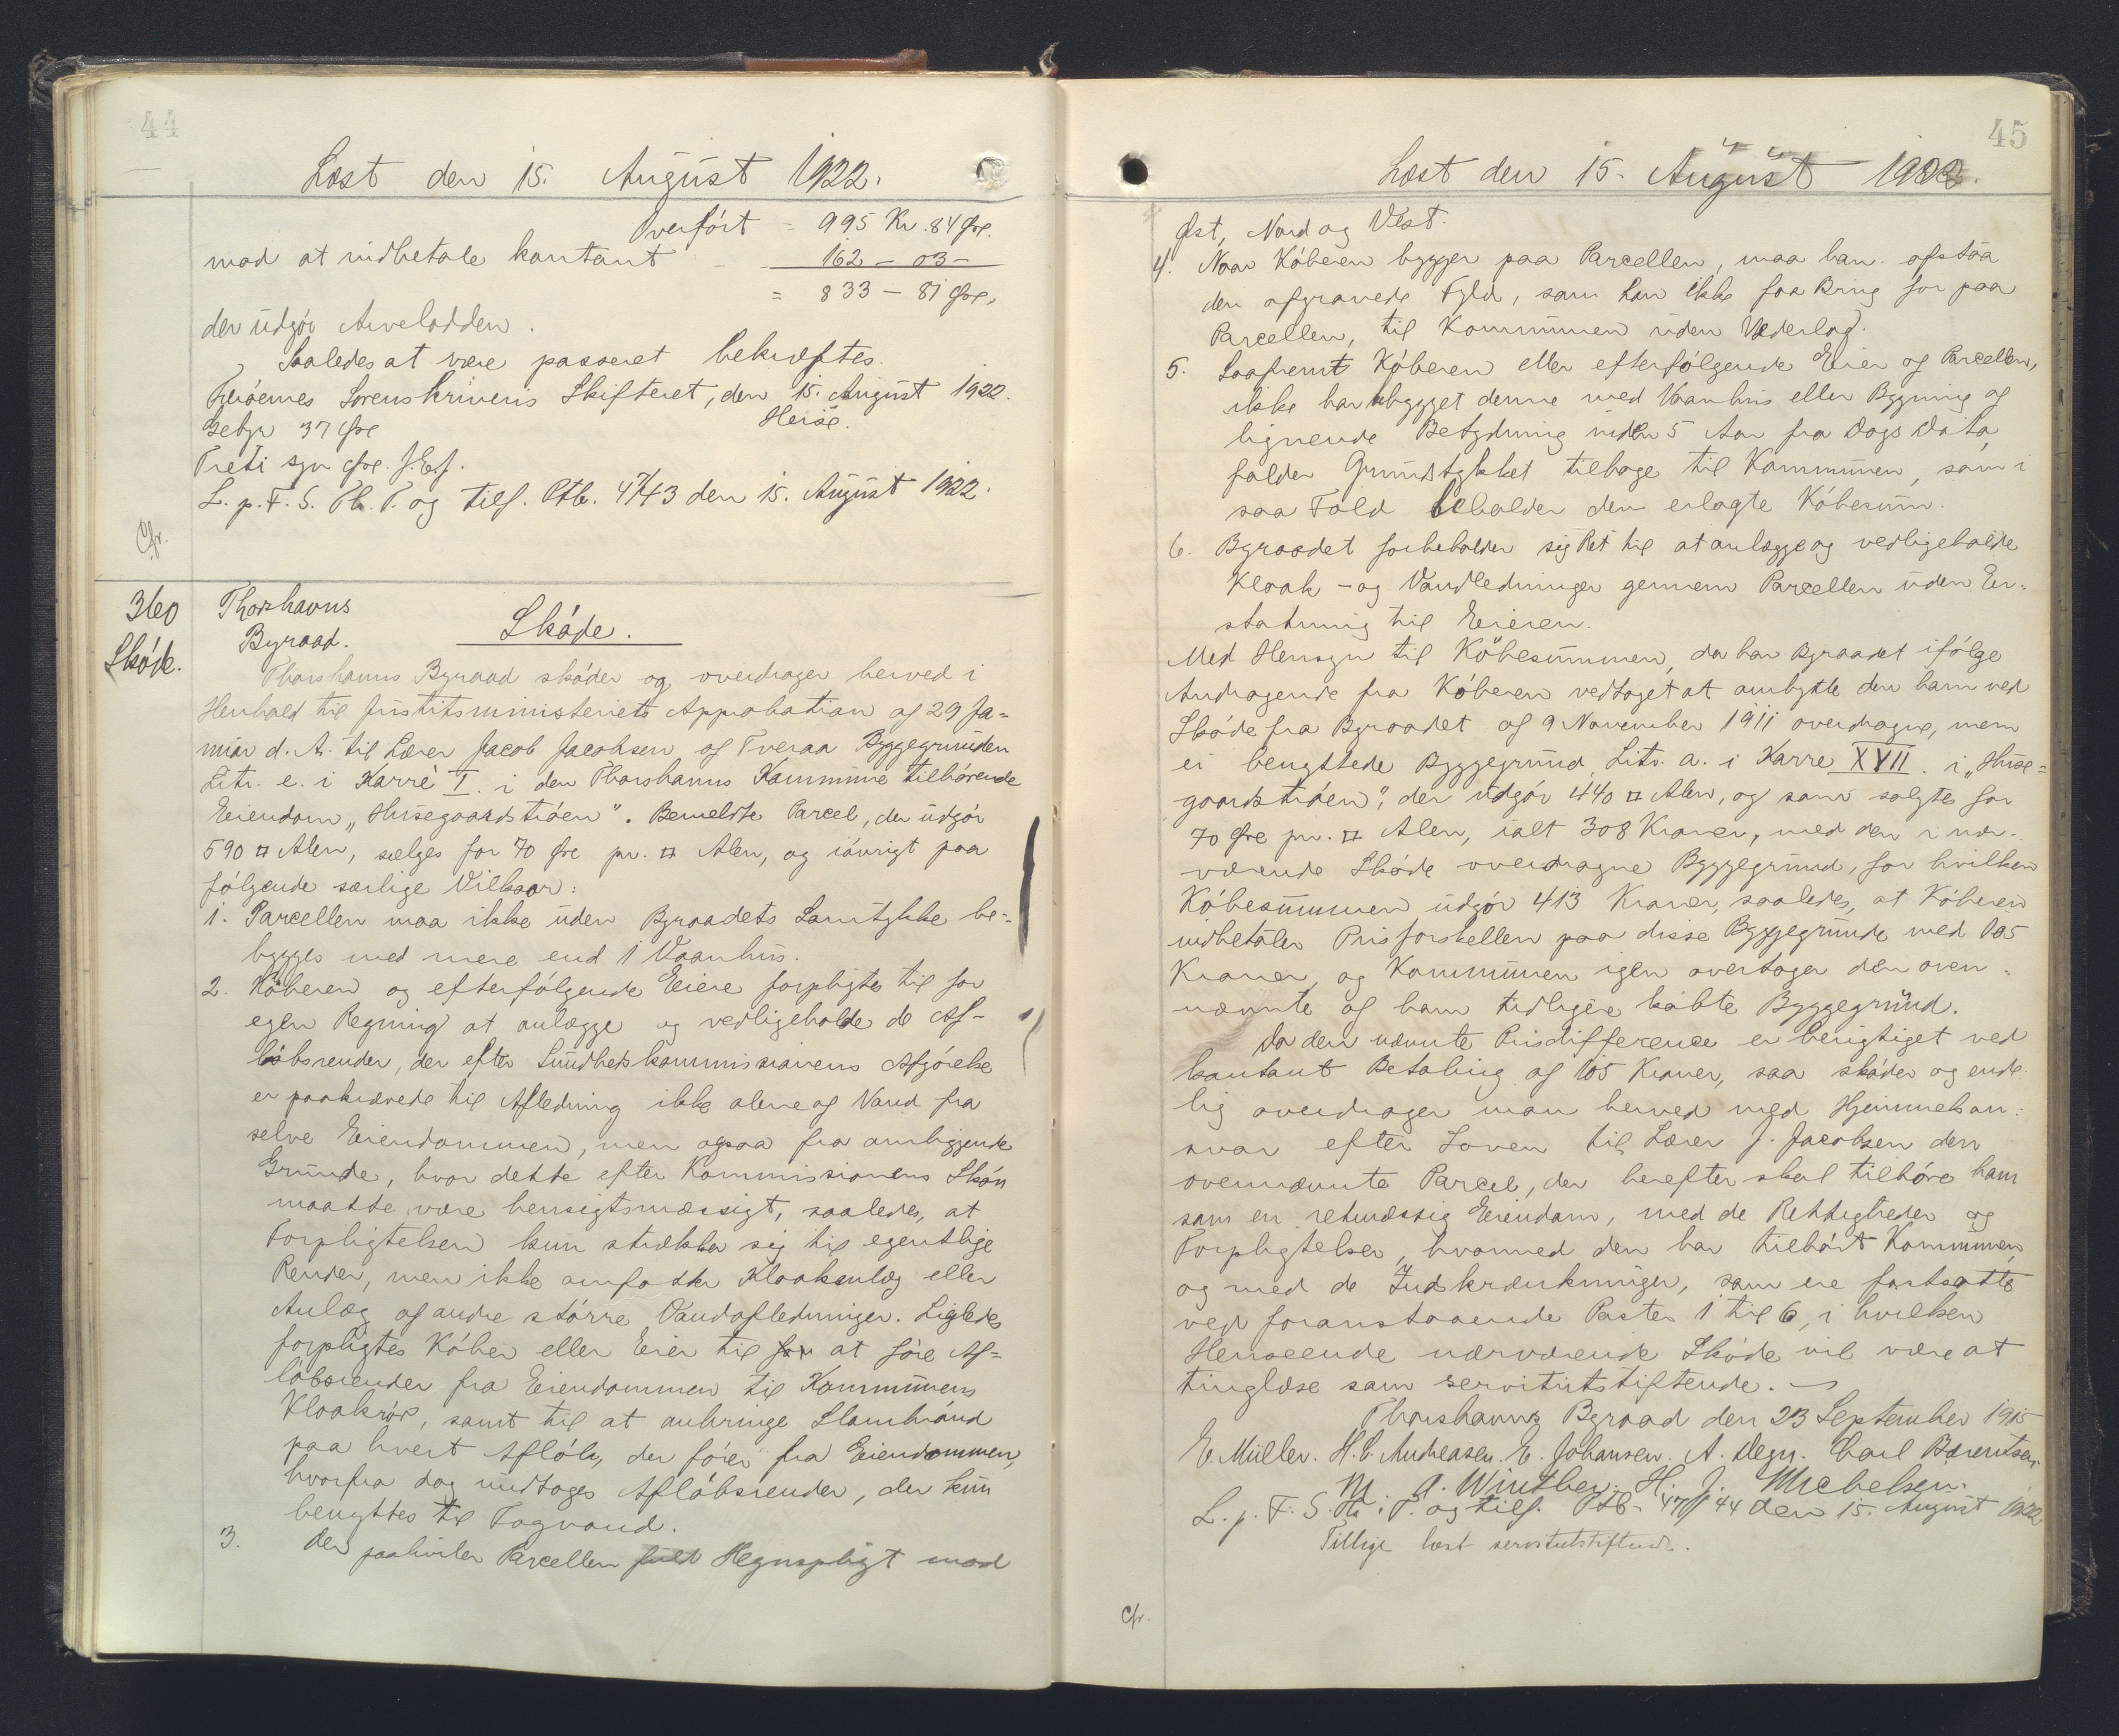 44
Læst den 15. August 1922.
Overført = 995 Kr. 84 Øre.
mod at indbetale kontant - 162 - 03 -
= 833 - 81 Øre,
der udgør Arvelodden.
Saaledes at være passeret bekræftes.
Færøernes Sorenskriveris Skifteret, den 15. August 1922.
Heise.
Gebyr 37 Øre
Treti syv Øre. J.E.f.
L. p. F. S. Th. T. og tilf. Ptb. 47/43 den 15. August 1922.
Cfr.
360
Skøde.
Thorshavns
Byraad.
Skøde.
Thorshavns Byraad skøder og overdrager herved i
Henhold til Justitsministeriets Approbation af 29 Ja=
nuar d. A. til Lærer Jacob Jacobsen af Tveraa Byggegrunden
Litr. e. i Karré I. i den Thorshavns Kommune tilhørende
Eiendom „Husegaardstrøen". Bemeldte Parcel, der udgør
590 □ Alen, sælges for 70 Øre pr. □ Alen, og iøvrigt paa
følgende særlige Vilkaar:
1. Parcellen maa ikke uden Byraadets Samtykke be=
bygges med mere end 1 Vaanhus.
2. Køberen og efterfølgende Eiere forpligtes til for
egen Regning at anlægge og vedligeholde de Af-
løbsrender, der efter Sundhedskommissionens Afgørelse
er paakrævede til Afledning ikke alene af Vand fra
selve Eiendommen, men ogsaa fra omliggende
Grunde, hvor dette efter Kommissionens Skøn
maatte være hensigtsmæssigt, saaledes, at
Forpligtelsen kun strækker sig til egentlige
Render, men ikke omfatter Kloakanlæg eller
Anlæg af andre større Vandafledninger. Ligeledes
forpligtes Køber eller Eier til for at føre Af=
løbsrender fra Eiendommen til Kommunens
Kloakrør, samt til at anbringe Slambrønd
paa hvert Afløb, der fører fra Eiendommen,
hvorfra dog undtages Afløbsrender, der kun
benyttes til Tagvand.
3. Der paahviler Parcellen fuld Hegnspligt mod
45
Læst den 15. August 1922.
Øst, Nord og Vest.
4. Naar Køberen bygger paa Parcellen, maa han afstaa
den afgravede Fyld, som han ikke faa Brug for paa
Parcellen, til Kommunen uden Vederlag.
5. Saafremt Køberen eller efterfølgende Eier af Parcellen,
ikke har bebygget denne med Vaanhus eller Bygning af
lignende Betydning inden 5 Aar fra Dags Dato,
falder Grundstykket tilbage til Kommunen, som i
saa Fald beholder den erlagte Købesum.
6. Byraadet forbeholder sig Ret til at anlægge og vedligeholde
Kloak - og Vandledninger gennem Parcellen uden Er=
statning til Eieren.
Med Hensyn til Købesummen, da har Byraadet ifølge
Andragende fra Køberen vedtaget at ombytte den ham ved
Skøde fra Byraadet af 9 November 1911 overdragne, men
ei benyttede Byggegrund, Litr. a. i Karre XVII. i „Huse=
gaardstrøen", der udgør 440 □ Alen, og som solgtes for
70 Øre pr. □ Alen, ialt 308 Kroner, med den i nær-
værende Skøde overdragne Byggegrund, for hvilken
Købesummen udgør 413 Kroner, saaledes, at Køberen
indbetaler Prisforskellen paa disse Byggegrunde med 105
Kroner, og Kommunen igen overtager den oven=
nævnte af ham tidligere købte Byggegrund.
Da den nævnte Prisdifference er berigtiget ved
kontant Betaling af 105 Kroner, saa skøder og ende
lig overdrager man herved med Hjemmelsan=
svar efter Loven til Lærer J. Jacobsen den
ovennævnte Parcel, der herefter skal tilhøre ham
som en retmæssig Eiendom, med de Rettigheder og
Forpligtelser, hvormed den har tilhørt Kommunen,
og med de Indskrænkninger, som ere fastsatte
ved foranstaaende Poster 1 til 6, i hvilken
Henseende nærværende Skøde vil være at
tinglæse som servitutstiftende.
Thorshavns Byraad den 23 September 1915
E. Müller. H. C. Andreasen. E. Johansen. A. Degn. Carl Bærentsen.
M. A. Winther. H. J. Michelsen.
L. p. F. S. Th. T. og tilf. Ptb. 47/44 den 15. August 1922
Tillige læst servitutstiftende.
Cfr.